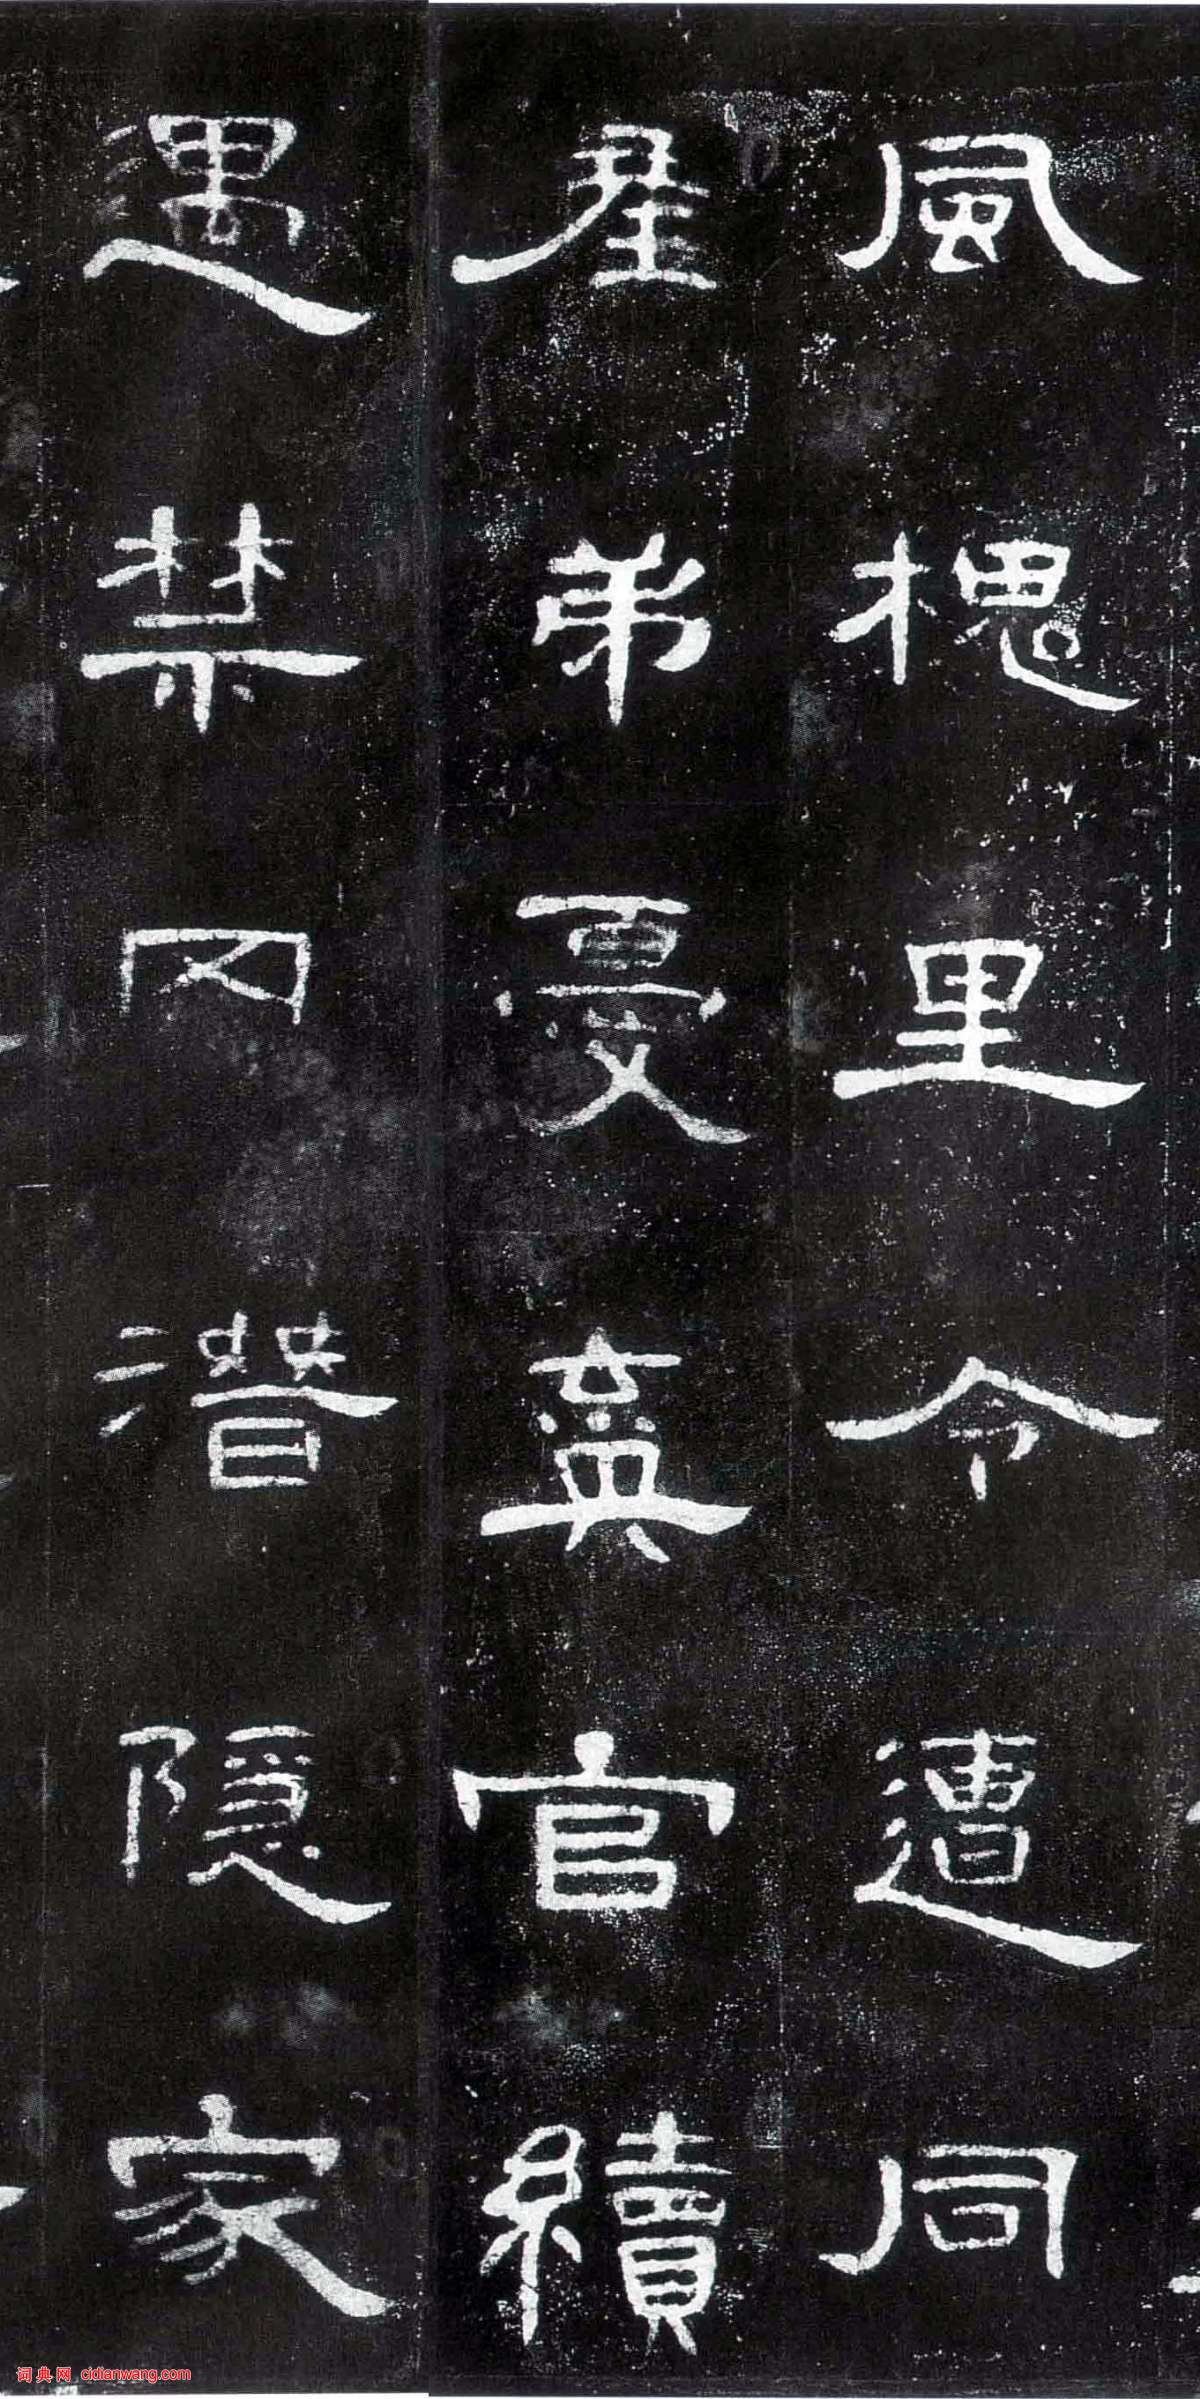 風槐里令遭同
産弟憂棄官續
遇禁冈潜隱家
词典网 cidianwang.com